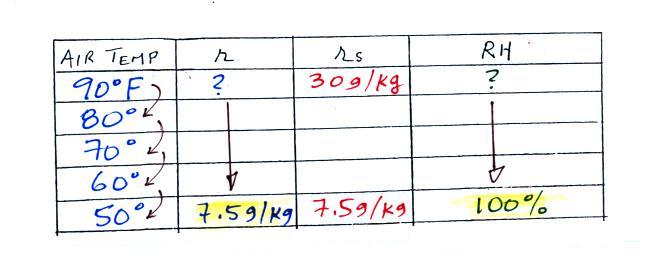 AIR TEMP r rs RH
90°F ? 30g/kg ?
80°
70°
60°
50° 7.5g/kg 7.5g/kg 100%